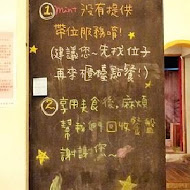 ①mint 沒有提供
帶位服務唷!
(建議您~先找位子
再來櫃檯點餐:)
②享用美食後,麻煩
幫我們回收餐盤
謝謝你~